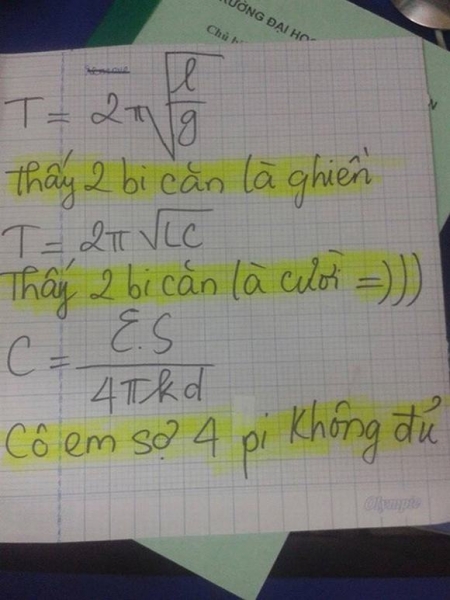 RƯỜNG ĐẠI HỌC
T = 2π√(l/g)
Thấy 2 bi căn là ghiền
T = 2π√LC
Thấy 2 bi căn là cười =)))
C = ε.S / 4πkd
Cô em sợ 4 pi không đủ
Olympic